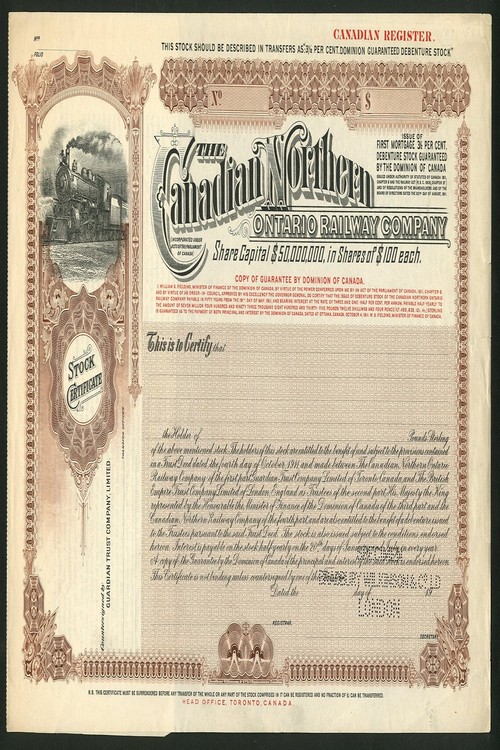 CANADIAN REGISTER.
THIS STOCK SHOULD BE DESCRIBED IN TRANSFERS AS "3½ PER CENT. DOMINION GUARANTEED DEBENTURE STOCK"
No
FOLIO
No
$
THE
Canadian Northern
ONTARIO RAILWAY COMPANY
INCORPORATED UNDER
ACTS OF THE PARLIAMENT
OF CANADA
ISSUE OF
FIRST MORTGAGE 3½ PER CENT.
DEBENTURE STOCK GUARANTEED
BY THE DOMINION OF CANADA
Share Capital $50,000,000, in Shares of $100 each.
COPY OF GUARANTEE BY DOMINION OF CANADA.
This is to Certify that
STOCK
CERTIFICATE
the Holder of Pounds Sterling
of the above mentioned stock. The holders of this stock are entitled to the benefit of and subject to the provisions contained
in a Trust Deed dated the fourth day of October, 1911, and made between The Canadian Northern Ontario
Railway Company of the first part, Guardian Trust Company Limited, of Toronto, Canada, and The British
Empire Trust Company, Limited, of London, England, as Trustees of the second part, His Majesty the King
represented by the Honourable the Minister of Finance of the Dominion of Canada of the third part and the
Canadian Northern Railway Company of the fourth part and are also entitled to the benefit of a debenture issued
to the Trustees pursuant to the said Trust Deed. The stock is also issued subject to the conditions endorsed
hereon. Interest is payable on the stock half yearly on the 20th days of January and July in every year.
A copy of the Guarantee by the Dominion of Canada of the principal and interest of the said stock is endorsed hereon.
This Certificate is not binding unless countersigned by one of the
Dated the day of 19
SPECIMEN
LONDON
REGISTRAR.
SECRETARY.
Countersigned by
GUARDIAN TRUST COMPANY, LIMITED
N.B. THIS CERTIFICATE MUST BE SURRENDERED BEFORE ANY TRANSFER OF THE WHOLE OR ANY PART OF THE STOCK COMPRISED IN IT CAN BE REGISTERED AND NO FRACTION OF £1 CAN BE TRANSFERRED.
HEAD OFFICE, TORONTO, CANADA.